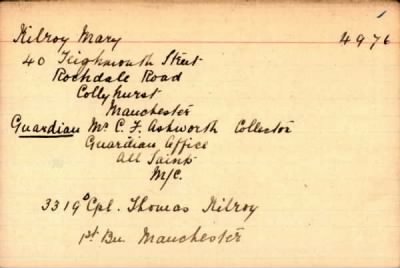 Kilroy Mary 4976
40 Teighmouth Street
Rochdale Road
Collyhurst
Manchester
Guardian Mr C. F. Ashworth Collector
Guardian Office
All Saints
M/C.
3319 Cpl. Thomas Kilroy
1st Bn Manchester